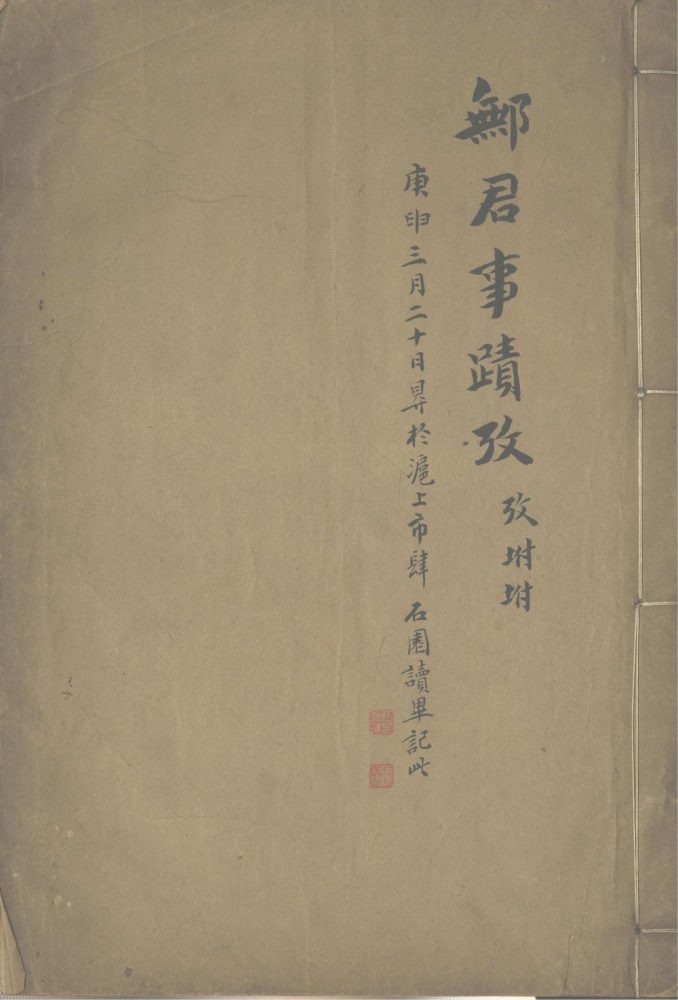 鄦君事蹟攷 攷坿坿
庚申三月二十日㝵於滬上市肆 石園讀畢記此